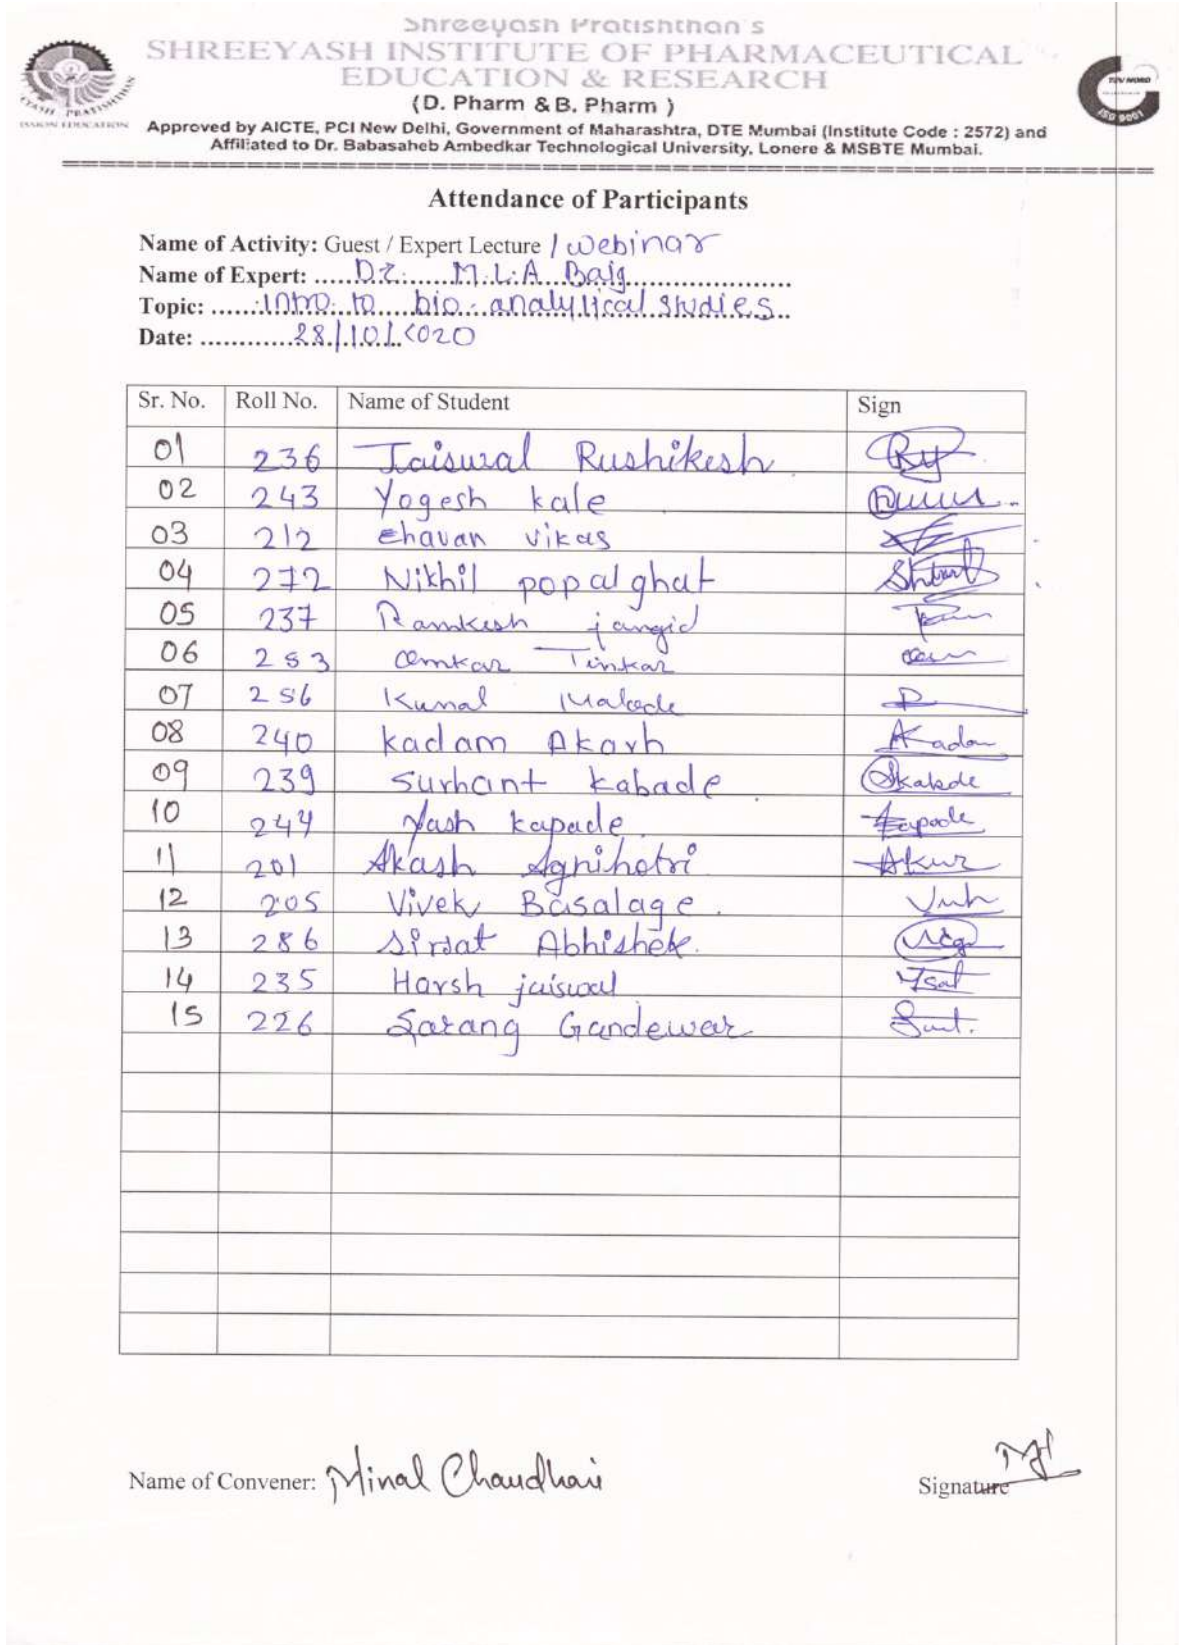 Shreeyash Pratishthan's
SHREEYASH INSTITUTE OF PHARMACEUTICAL
EDUCATION & RESEARCH
(D. Pharm & B. Pharm )
Approved by AICTE, PCI New Delhi, Government of Maharashtra, DTE Mumbai (Institute Code : 2572) and
Affiliated to Dr. Babasaheb Ambedkar Technological University, Lonere & MSBTE Mumbai.
TUV NORD
ISO 9001
Attendance of Participants
Name of Activity: Guest / Expert Lecture / Webinar
Name of Expert: Dr. M.L.A Baig
Topic: Intro to bio-analytical studies
Date: 28/10/2020
Sr. No. Roll No. Name of Student Sign
01 236 Jaiswal Rushikesh
02 243 Yogesh kale
03 212 Chavan vikas
04 272 Nikhil popalghat
05 237 Ramkesh jangid
06 253 Omkar Tinkar
07 256 Kunal
08 240 kadam Akash Akadam
09 239 Sushant kabade Skabade
10 244 Yash kapade kapade
11 201 Akash Agnihotri
12 205 Vivek Basalage
13 286 Sirsat Abhishek
14 235 Harsh jaiswal
15 226 Sarang Gandewar
Name of Convener: Minal Chaudhari
Signature